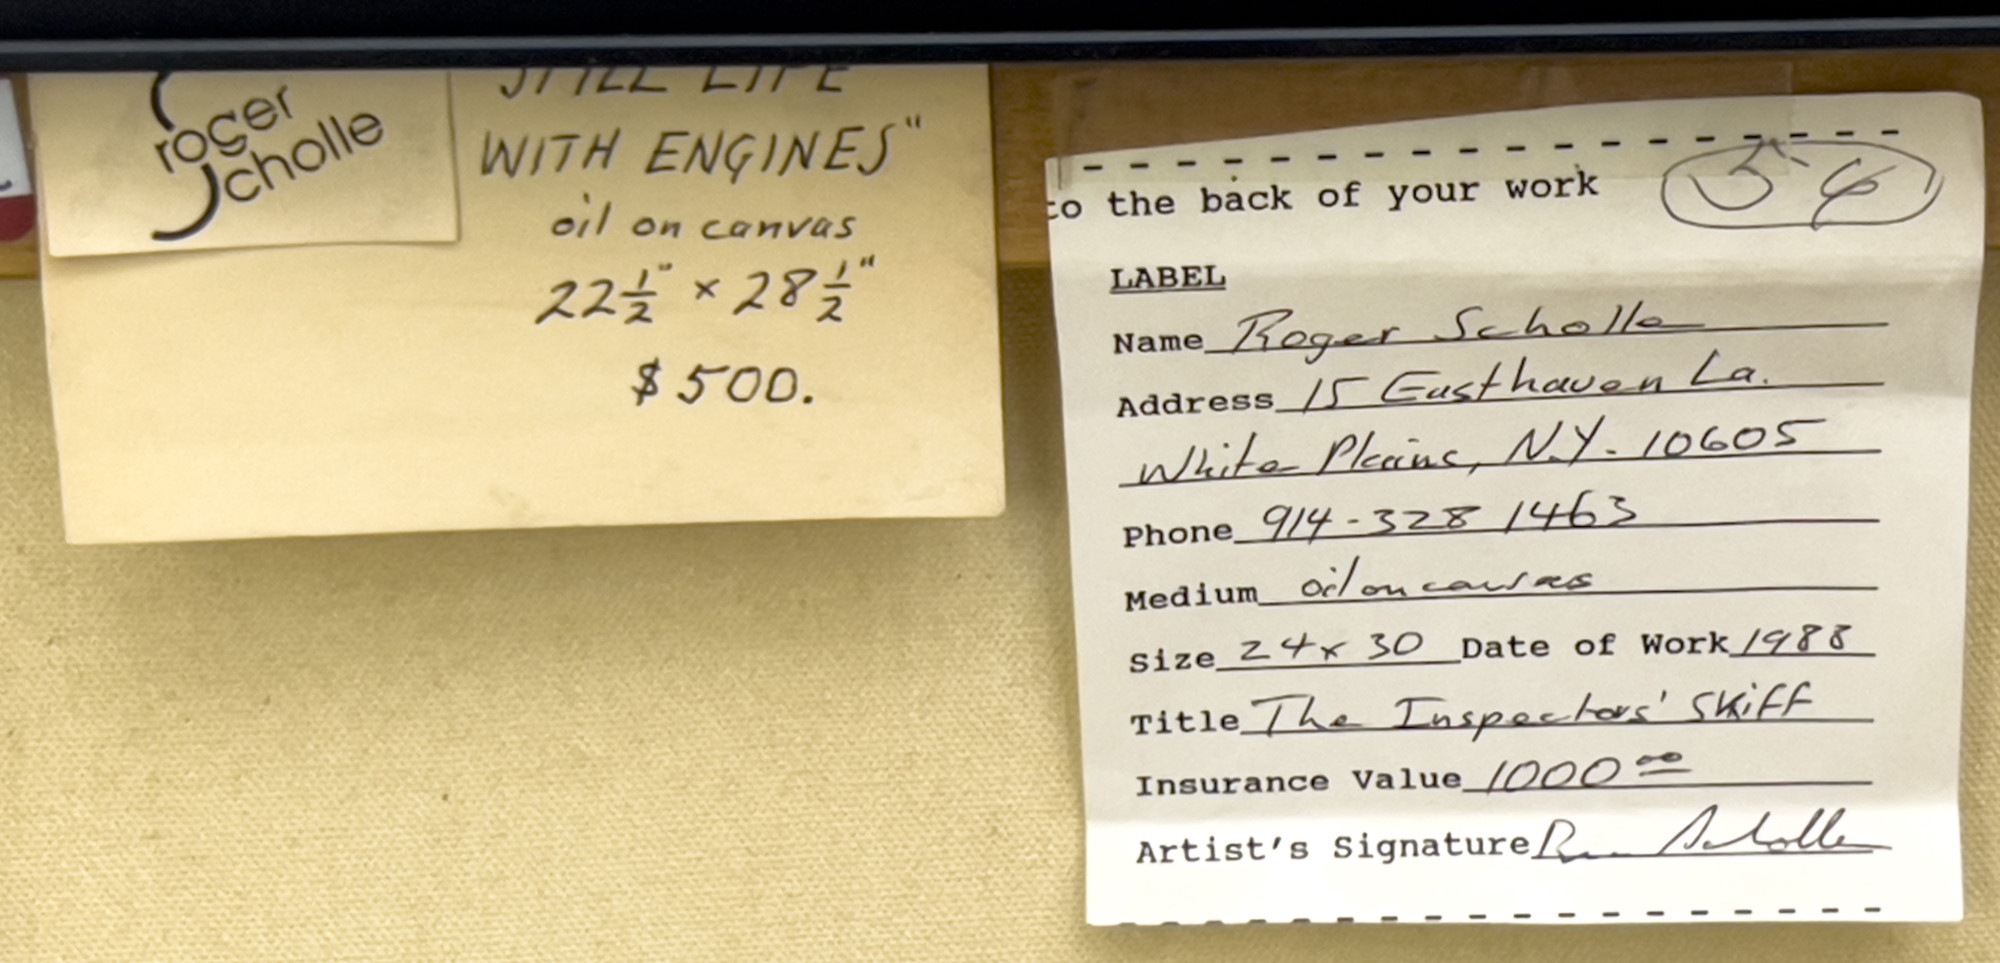 roger
Scholle
STILL LIFE
WITH ENGINES"
oil on canvas
22 1/2" x 28 1/2"
$500.
to the back of your work
54
LABEL
Name Roger Scholle
Address 15 Easthaven La.
White Plains, N.Y. 10605
Phone 914-328 1463
Medium oil on canvas
Size 24x 30 Date of Work 1988
Title The Inspectors' Skiff
Insurance Value 1000 00
Artist's Signature R Scholle